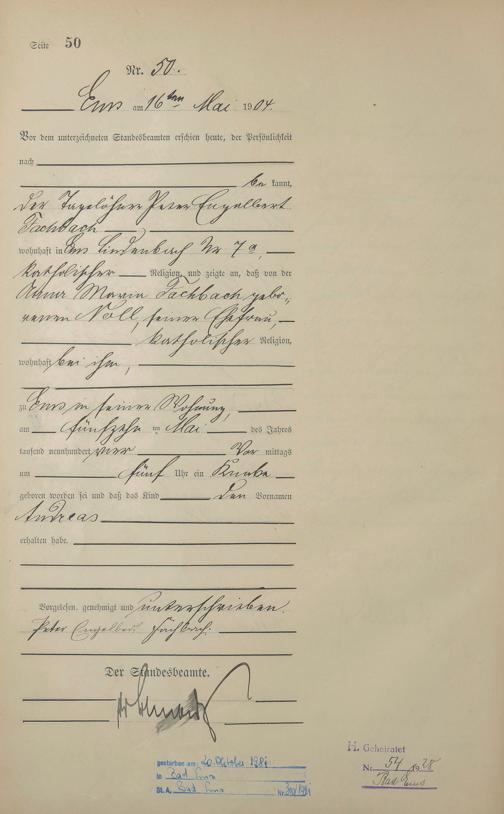 Seite 50
Nr. 50.
Ems am 16ten Mai 1904.
Vor dem unterzeichneten Standesbeamten erschien heute, der Persönlichkeit
nach
be kannt,
der Tagelöhner Peter Engelbert
Fachbach
wohnhaft in Ems Lindenbach Nr 7a,
katholischer Religion, und zeigte an, daß von der
Anna Maria Fachbach gebo-
renen Noll, seiner Ehefrau,
katholischer Religion,
wohnhaft bei ihm,
zu Ems in seiner Wohnung,
am fünfzehn ten Mai des Jahres
tausend neunhundert vier Vor mittags
um fünf Uhr ein Knabe
geboren worden sei und daß das Kind den Vornamen
Andreas
erhalten habe.
Vorgelesen, genehmigt und unterschrieben.
Peter Engelbert Fachbach.
Der Standesbeamte.
gestorben am: 20. Oktober 1981
in Bad Ems
St.A. Bad Ems Nr. /1981
H. Geheiratet
Nr. 54 1928
Bad Ems